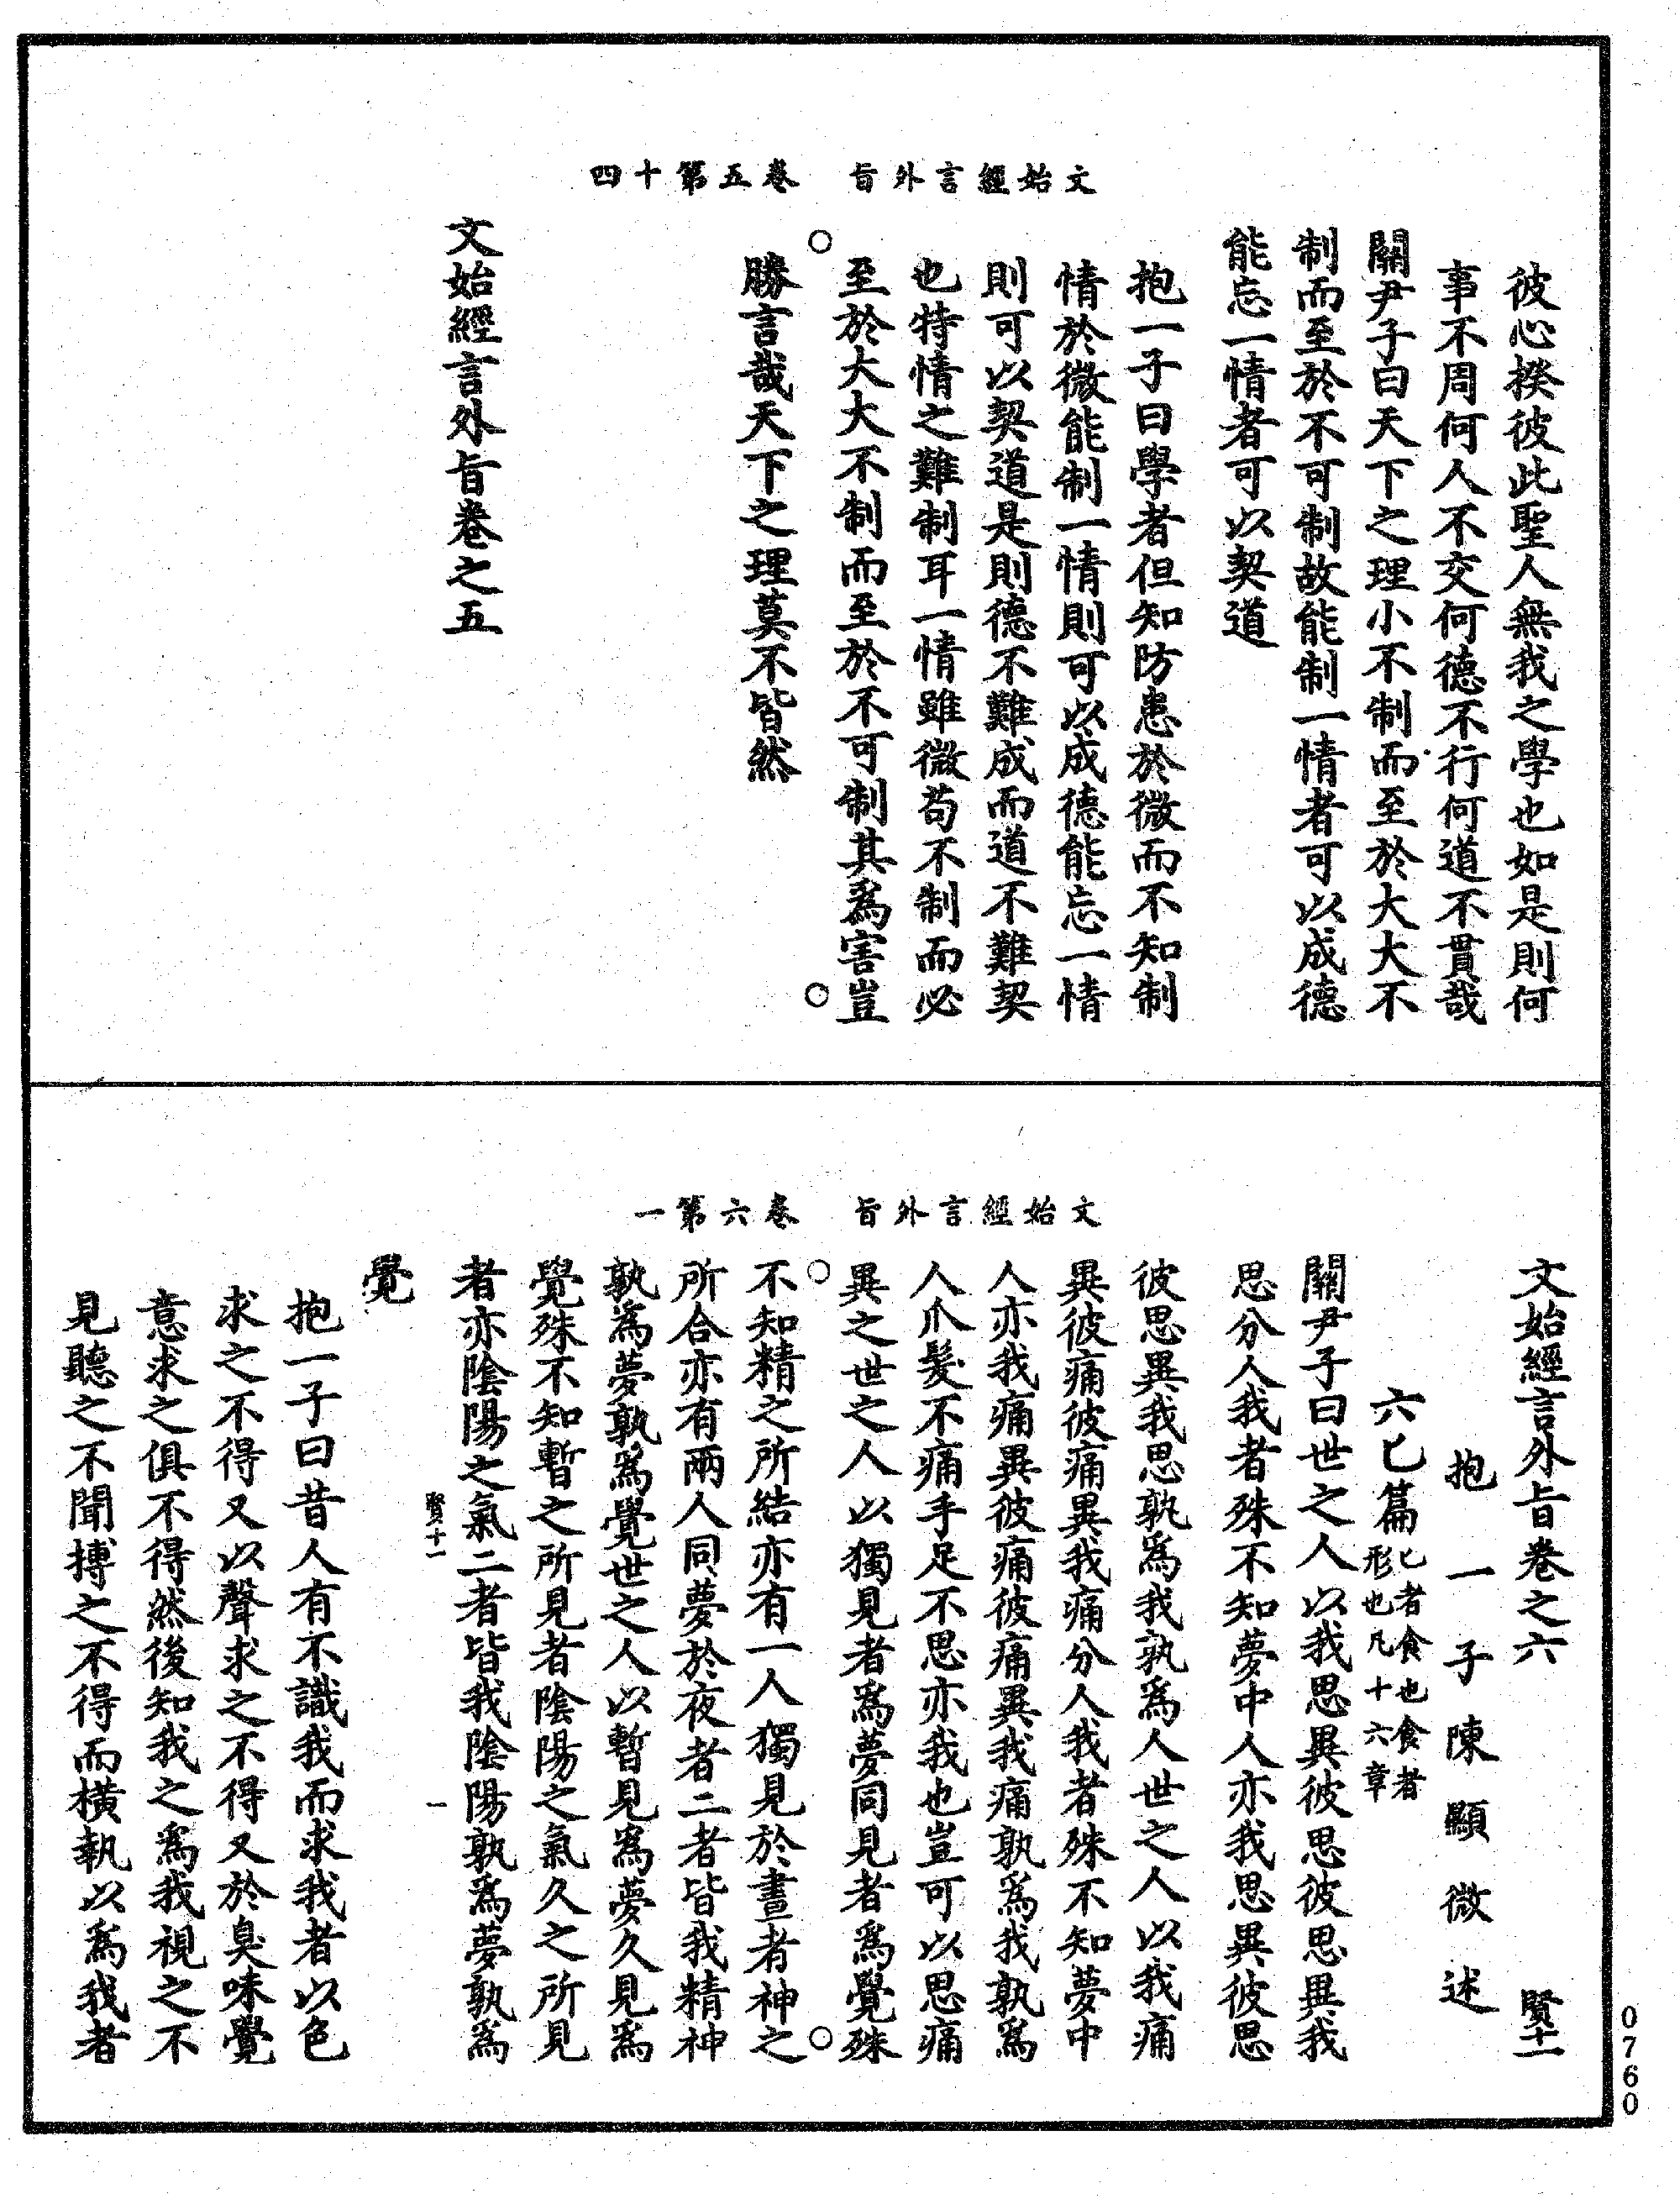 文始經言外旨　卷五第十四
彼心揆彼此聖人無我之學也如是則何
事不周何人不交何德不行何道不貫哉
關尹子曰天下之理小不制而至於大大不
制而至於不可制故能制一情者可以成德
能忘一情者可以契道
抱一子曰學者但知防患於微而不知制
情於微能制一情則可以成德能忘一情
則可以契道是則德不難成而道不難契
也特情之難制耳一情雖微苟不制而必
至於大大不制而至於不可制其爲害豈
勝言哉天下之理莫不皆然
文始經言外旨卷之五
文始經言外旨　卷六第一
文始經言外旨卷之六　賢十一
抱一子陳顯微述
六匕篇匕者食也食者
形也凡十六章
關尹子曰世之人以我思異彼思彼思異我
思分人我者殊不知夢中人亦我思異彼思
彼思異我思孰爲我孰爲人世之人以我痛
異彼痛彼痛異我痛分人我者殊不知夢中
人亦我痛異彼痛彼痛異我痛孰爲我孰爲
人爪髮不痛手足不思亦我也豈可以思痛
異之世之人以獨見者爲夢同見者爲覺殊
不知精之所結亦有一人獨見於晝者神之
所合亦有兩人同夢於夜者二者皆我精神
孰爲夢孰爲覺世之人以暫見爲夢久見爲
覺殊不知暫之所見者陰陽之氣久之所見
者亦陰陽之氣二者皆我陰陽孰爲夢孰爲
賢十一　一
覺
抱一子曰昔人有不識我而求我者以色
求之不得又以聲求之不得又於臭味覺
意求之俱不得然後知我之爲我視之不
見聽之不聞搏之不得而橫執以爲我者
0760